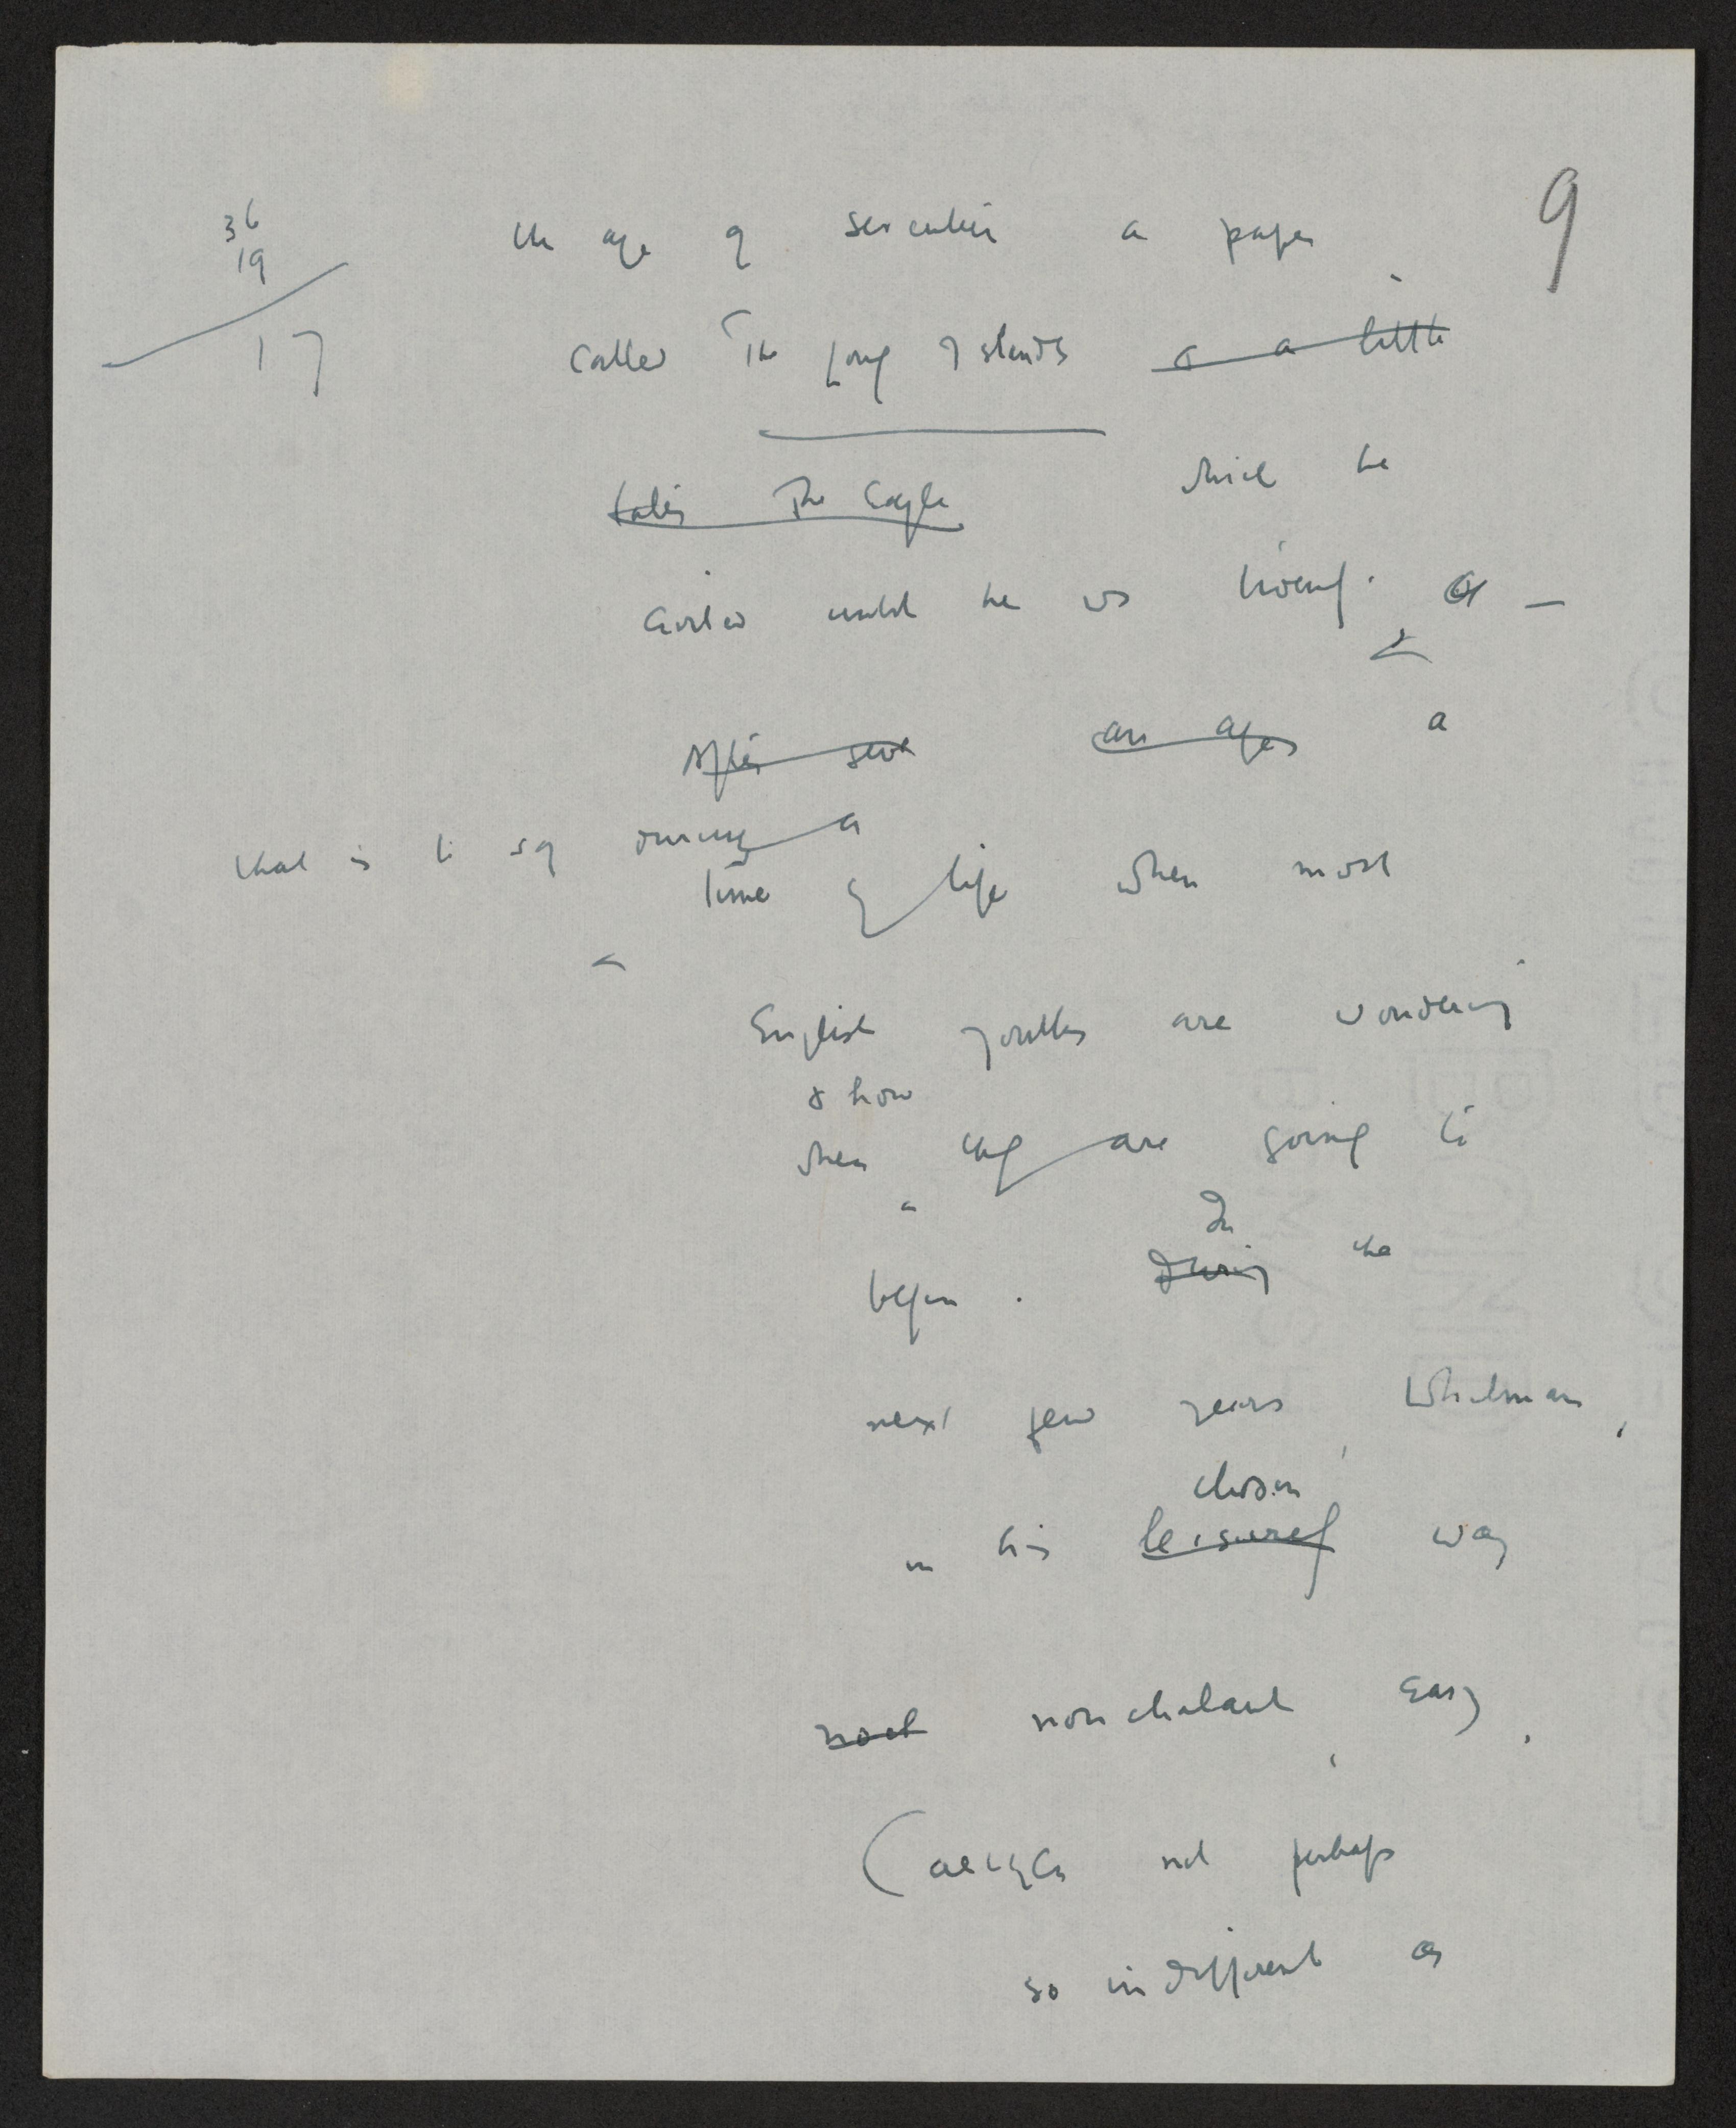 9
36
19
17
the age of seventeen a paper
called The Long Islander & a little
later The Eagle which he
edited until he was twenty.
After seve an age a
that is to say during a
time of life when most
English youths are wondering
& how
when they are going to
In
begin. During the
next few years, Whitman,
chosen
in his leisurely way
not nonchalant, easy,
(although not perhaps
so indifferent as